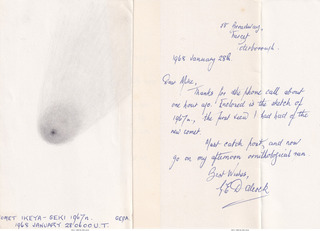 COMET IKEYA-SEKI 1967n. GEDA
1968 JANUARY 28 0600 U.T.
Broadway,
Farcet
Peterborough.
1968 January 28th
Dear Mike,
Thanks for the phone call about
one hour ago. Enclosed is the sketch of
1967n, the first view I had had of the
new comet.
Must catch post, and now
go on my afternoon ornithological run.
Best Wishes,
G.E.D. Alcock